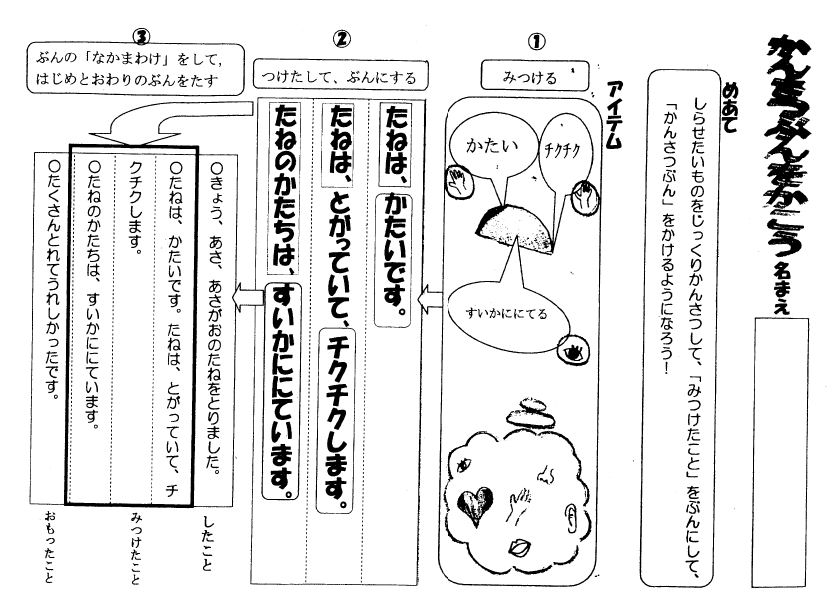 かんさつぶんをかこう
名まえ
めあて
しらせたいものをじっくりかんさつして、「みつけたこと」をぶんにして、
「かんさつぶん」をかけるようになろう！
アイテム
①
みつける
チクチク
かたい
すいかににてる
②
つけたして、ぶんにする
たねは、かたいです。
たねは、とがっていて、チクチクします。
たねのかたちは、すいかににています。
③
ぶんの「なかまわけ」をして、
はじめとおわりのぶんをたす
○きょう、あさ、あさがおのたねをとりました。
○たねは、かたいです。たねは、とがっていて、チ
クチクします。
○たねのかたちは、すいかににています。
○たくさんとれてうれしかったです。
したこと
みつけたこと
おもったこと